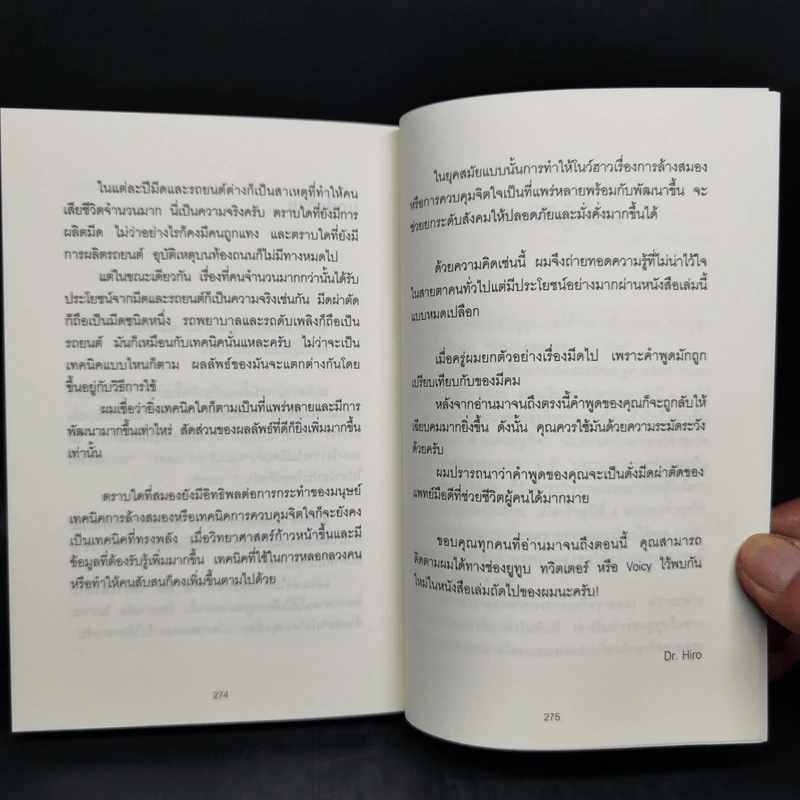 ในแต่ละปีมีดและรถยนต์ต่างก็เป็นสาเหตุที่ทำให้คน
เสียชีวิตจำนวนมาก นี่เป็นความจริงครับ ตราบใดที่ยังมีการ
ผลิตมีด ไม่ว่าอย่างไรก็คงมีคนถูกแทง และตราบใดที่ยังมี
การผลิตรถยนต์ อุบัติเหตุบนท้องถนนก็ไม่มีทางหมดไป
แต่ในขณะเดียวกัน เรื่องที่คนจำนวนมากกว่านั้นได้รับ
ประโยชน์จากมีดและรถยนต์ก็เป็นความจริงเช่นกัน มีดผ่าตัด
ก็ถือเป็นมีดชนิดหนึ่ง รถพยาบาลและรถดับเพลิงก็ถือเป็น
รถยนต์ มันก็เหมือนกับเทคนิคนั่นแหละครับ ไม่ว่าจะเป็น
เทคนิคแบบไหนก็ตาม ผลลัพธ์ของมันจะแตกต่างกันโดย
ขึ้นอยู่กับวิธีการใช้
ผมเชื่อว่ายิ่งเทคนิคใดก็ตามเป็นที่แพร่หลายและมีการ
พัฒนามากขึ้นเท่าไหร่ สัดส่วนของผลลัพธ์ที่ดีก็ยิ่งเพิ่มมากขึ้น
เท่านั้น
ตราบใดที่สมองยังมีอิทธิพลต่อการกระทำของมนุษย์
เทคนิคการล้างสมองหรือเทคนิคการควบคุมจิตใจก็จะยังคง
เป็นเทคนิคที่ทรงพลัง เมื่อวิทยาศาสตร์ก้าวหน้าขึ้นและมี
ข้อมูลที่ต้องรับรู้เพิ่มมากขึ้น เทคนิคที่ใช้ในการหลอกลวงคน
หรือทำให้คนสับสนก็คงเพิ่มขึ้นตามไปด้วย
274
ในยุคสมัยแบบนั้นการทำให้โนว์ฮาวเรื่องการล้างสมอง
หรือการควบคุมจิตใจเป็นที่แพร่หลายพร้อมกับพัฒนาขึ้น จะ
ช่วยยกระดับสังคมให้ปลอดภัยและมั่งคั่งมากขึ้นได้
ด้วยความคิดเช่นนี้ ผมจึงถ่ายทอดความรู้ที่ไม่น่าไว้ใจ
ในสายตาคนทั่วไปแต่มีประโยชน์อย่างมากผ่านหนังสือเล่มนี้
แบบหมดเปลือก
เมื่อครู่ผมยกตัวอย่างเรื่องมีดไป เพราะคำพูดมักถูก
เปรียบเทียบกับของมีคม
หลังจากอ่านมาจนถึงตรงนี้คำพูดของคุณก็จะถูกลับให้
เฉียบคมมากยิ่งขึ้น ดังนั้น คุณควรใช้มันด้วยความระมัดระวัง
ด้วยครับ
ผมปรารถนาว่าคำพูดของคุณจะเป็นดั่งมีดผ่าตัดของ
แพทย์มือดีที่ช่วยชีวิตผู้คนได้มากมาย
ขอบคุณทุกคนที่อ่านมาจนถึงตอนนี้ คุณสามารถ
ติดตามผมได้ทางช่องยูทูบ ทวิตเตอร์ หรือ Voicy ไว้พบกัน
ใหม่ในหนังสือเล่มถัดไปของผมนะครับ!
Dr. Hiro
275